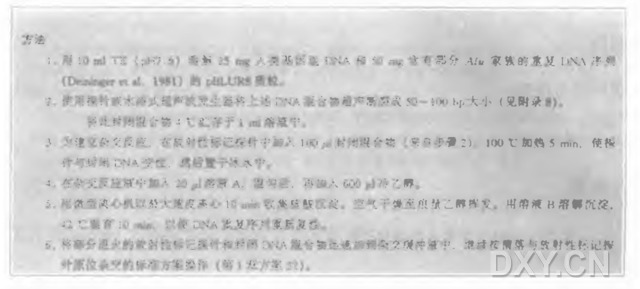 方法
1. 用 10 ml TE (pH7.6) 溶解 25 mg 人类基因组 DNA 和 50 mg 含有部分 Alu 家族的重复 DNA 序列
(Deininger et al. 1981) 的 pBLUR8 质粒。
2. 使用探针或水浴式超声波发生器将上述 DNA 混合物超声断裂成 50~100 bp 大小 (见附录8)。
封闭混合物 4℃ 1 ml 溶液中。
3. 为建立杂交反应, 在放射性标记探针中加入 100 μl 封闭混合物 (来自步骤 2), 100℃加热 5 min, 使探
针与封闭 DNA 变性, 然后置于冰水中。
4. 在杂交反应液中加入 20 μl 溶液 A, 混匀后, 再加入 600 μl 冷乙醇。
5. 用微量离心机以最大速度离心 10 min 收集核酸沉淀。空气干燥至痕量乙醇挥发。用溶液 B 溶解沉淀,
42℃ 10 min, 以使 DNA 重复序列重新复性。
6. 将部分退火的放射性标记探针和封闭 DNA 混合物迅速加到杂交缓冲液中, 继续按菌落与放射性标记探
针原位杂交的标准方案操作 (第1章方案32)。
DXY.CN